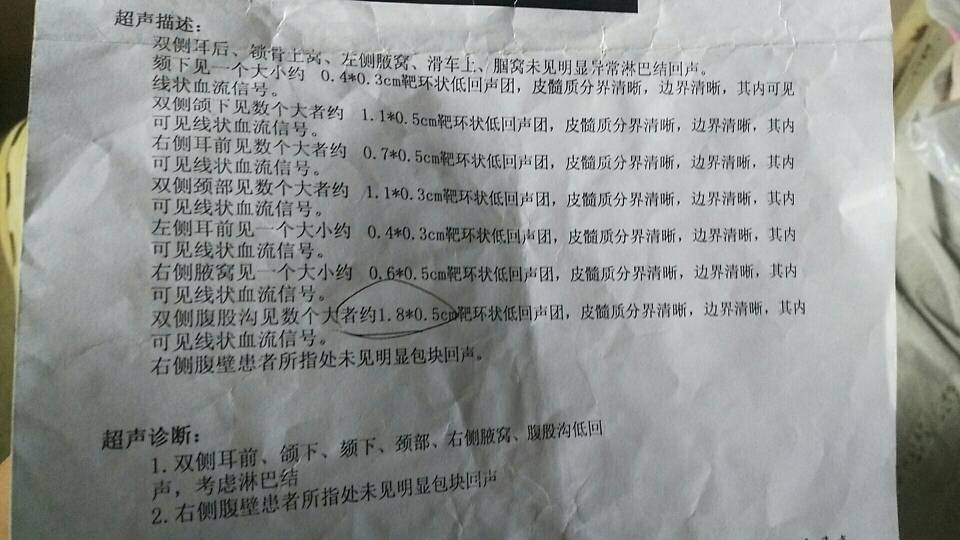 超声描述:
双侧耳后、锁骨上窝、左侧腋窝、滑车上、腘窝未见明显异常淋巴结回声。
颏下见一个大小约 0.4*0.3cm靶环状低回声团，皮髓质分界清晰，边界清晰，其内可见
线状血流信号。
双侧颌下见数个大者约 1.1*0.5cm靶环状低回声团，皮髓质分界清晰，边界清晰，其内
可见线状血流信号。
右侧耳前见数个大者约 0.7*0.5cm靶环状低回声团，皮髓质分界清晰，边界清晰，其内
可见线状血流信号。
双侧颈部见数个大者约 1.1*0.3cm靶环状低回声团，皮髓质分界清晰，边界清晰，其内
可见线状血流信号。
左侧耳前见一个大小约 0.4*0.3cm靶环状低回声团，皮髓质分界清晰，边界清晰，其内
可见线状血流信号。
右侧腋窝见一个大小约 0.6*0.5cm靶环状低回声团，皮髓质分界清晰，边界清晰，其内
可见线状血流信号。
双侧腹股沟见数个大者约1.8*0.5cm靶环状低回声团，皮髓质分界清晰，边界清晰，其内
可见线状血流信号。
右侧腹壁患者所指处未见明显包块回声。
超声诊断:
1.双侧耳前、颌下、颏下、颈部、右侧腋窝、腹股沟低回
声，考虑淋巴结
2.右侧腹壁患者所指处未见明显包块回声